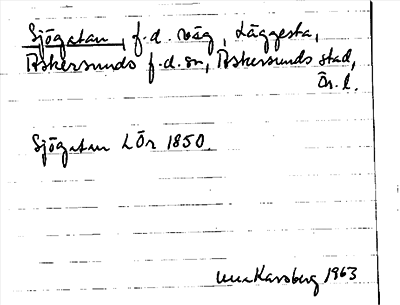 Sjögatan, f.d. väg, Läggesta,
Askersunds f.d. sn, Askersunds stad,
Ör. l.
Sjögatan LÖr 1850.
Karsberg 1963